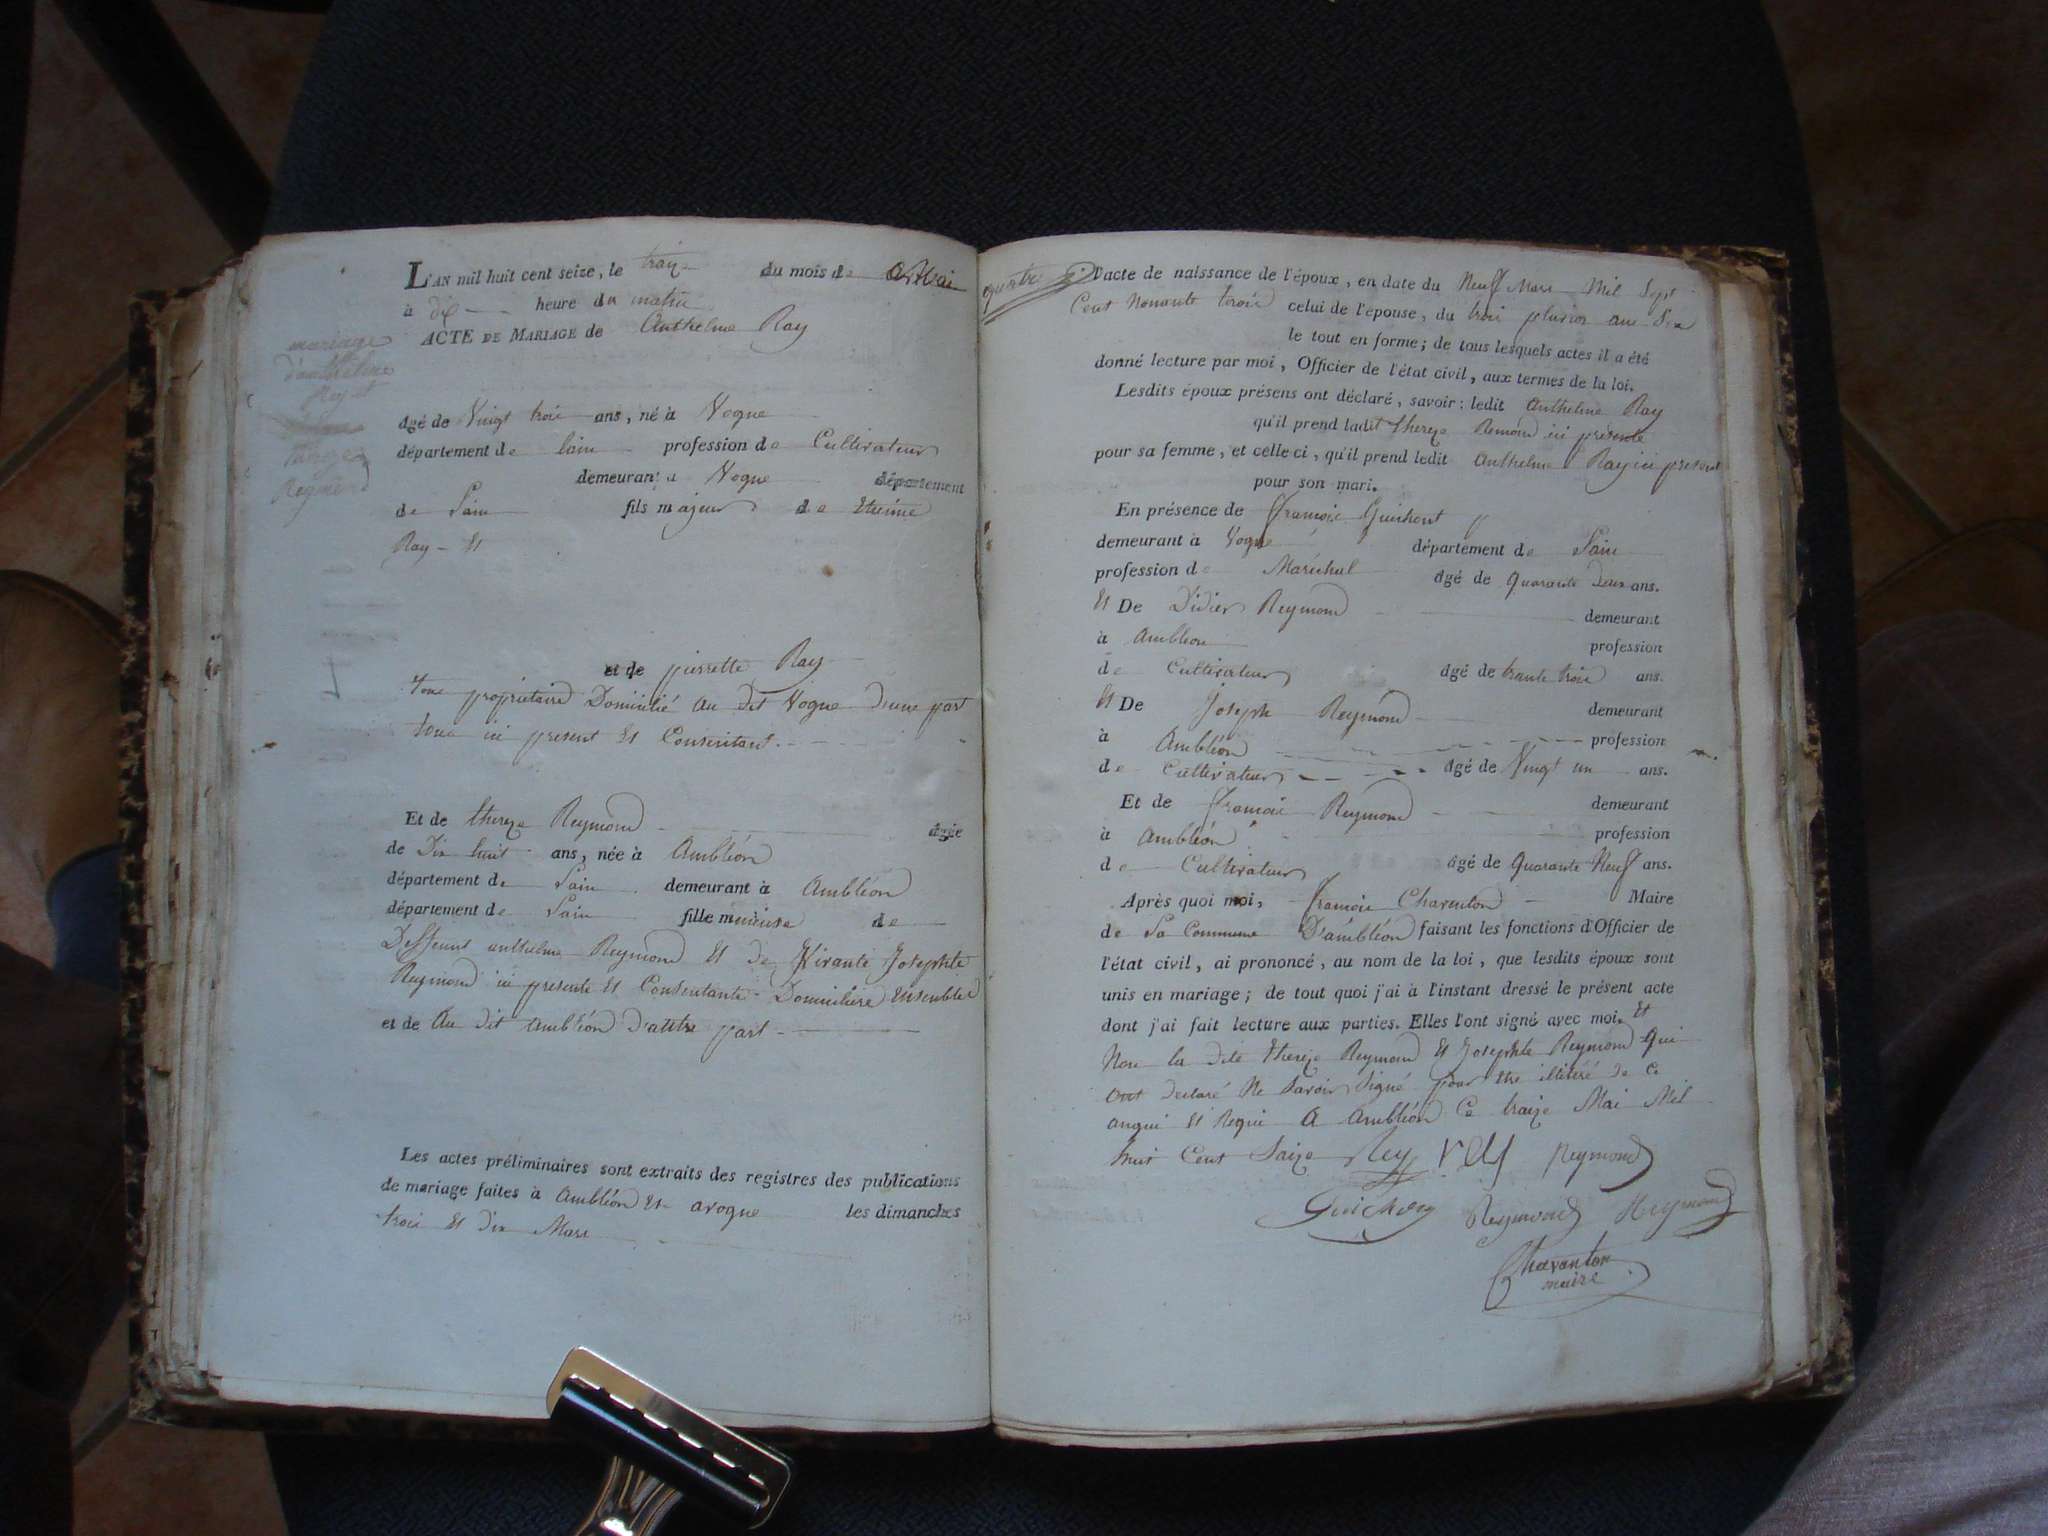 L'AN mil huit cent seize, le traize du mois de Mai
à dix heure du matin
ACTE DE MARIAGE de Anthelme Ray
mariage
d'anthelme
Rey et
Reymond
âgé de Vingt trois ans, né à Vogne
département de lain profession de Cultivateur
demeurant a Vogne département
de Lain fils majeur de Etienne
Ray Et
et de pierrette Ray
tous propriétaire Domicilié au dit Vogne D'une part
tous ici present Et Consentant.
Et de thereze Reymond âgée
de Dix huit ans, née à Ambléon
département de Lain demeurant à Ambléon
département de Lain fille mineure de
Deffeunt anthelme Reymond Et de Josephte
Reymond ici presente Et Consentante Domiciliére Ensembles
et de Au dit Ambléon D'autre part
Les actes préliminaires sont extraits des registres des publications
de mariage faites à Ambléon Et avogne les dimanches
trois Et dix Mars
l'acte de naissance de l'époux, en date du Neuf Mars Mil Sept
Cent Nonante trois celui de l'épouse, du trois pluvios ans Six
le tout en forme; de tous lesquels actes il a été
donné lecture par moi, Officier de l'état civil, aux termes de la loi.
Lesdits époux présens ont déclaré, savoir: ledit Anthelme Ray
qu'il prend ladit thereze Remond ici présente
pour sa femme, et celle ci, qu'il prend ledit Anthelme Ray ici present
pour son mari.
En présence de françois Guichert
demeurant à Vogne département de Lain
profession de Maréchal âgé de Quarante Deux ans.
Et De Didier Reymond demeurant
à Ambléon profession
de Cultivateur âgé de trante trois ans.
Et De Joseph Reymond demeurant
à Ambléon profession
de Cultivateur âgé de Vingt un ans.
Et de françois Reymond demeurant
à Ambléon profession
de Cultivateur âgé de Quarante Neuf ans.
Après quoi moi, françois Charenton Maire
de La Commune D'ambléon faisant les fonctions d'Officier de
l'état civil, ai prononcé, au nom de la loi, que lesdits époux sont
unis en mariage; de tout quoi j'ai à l'instant dressé le présent acte
dont j'ai fait lecture aux parties. Elles l'ont signé avec moi. Et
Non la dite thereze Reymond Et Josephte Reymond qui
ont declaré Ne Savoir Signé pour Etre illitéré de Ce
anqui Et Requi A Ambléon Ce traize Mai Mil
huit Cent Saize Rey Reymond
Reymond Reymond
Charanton
maire